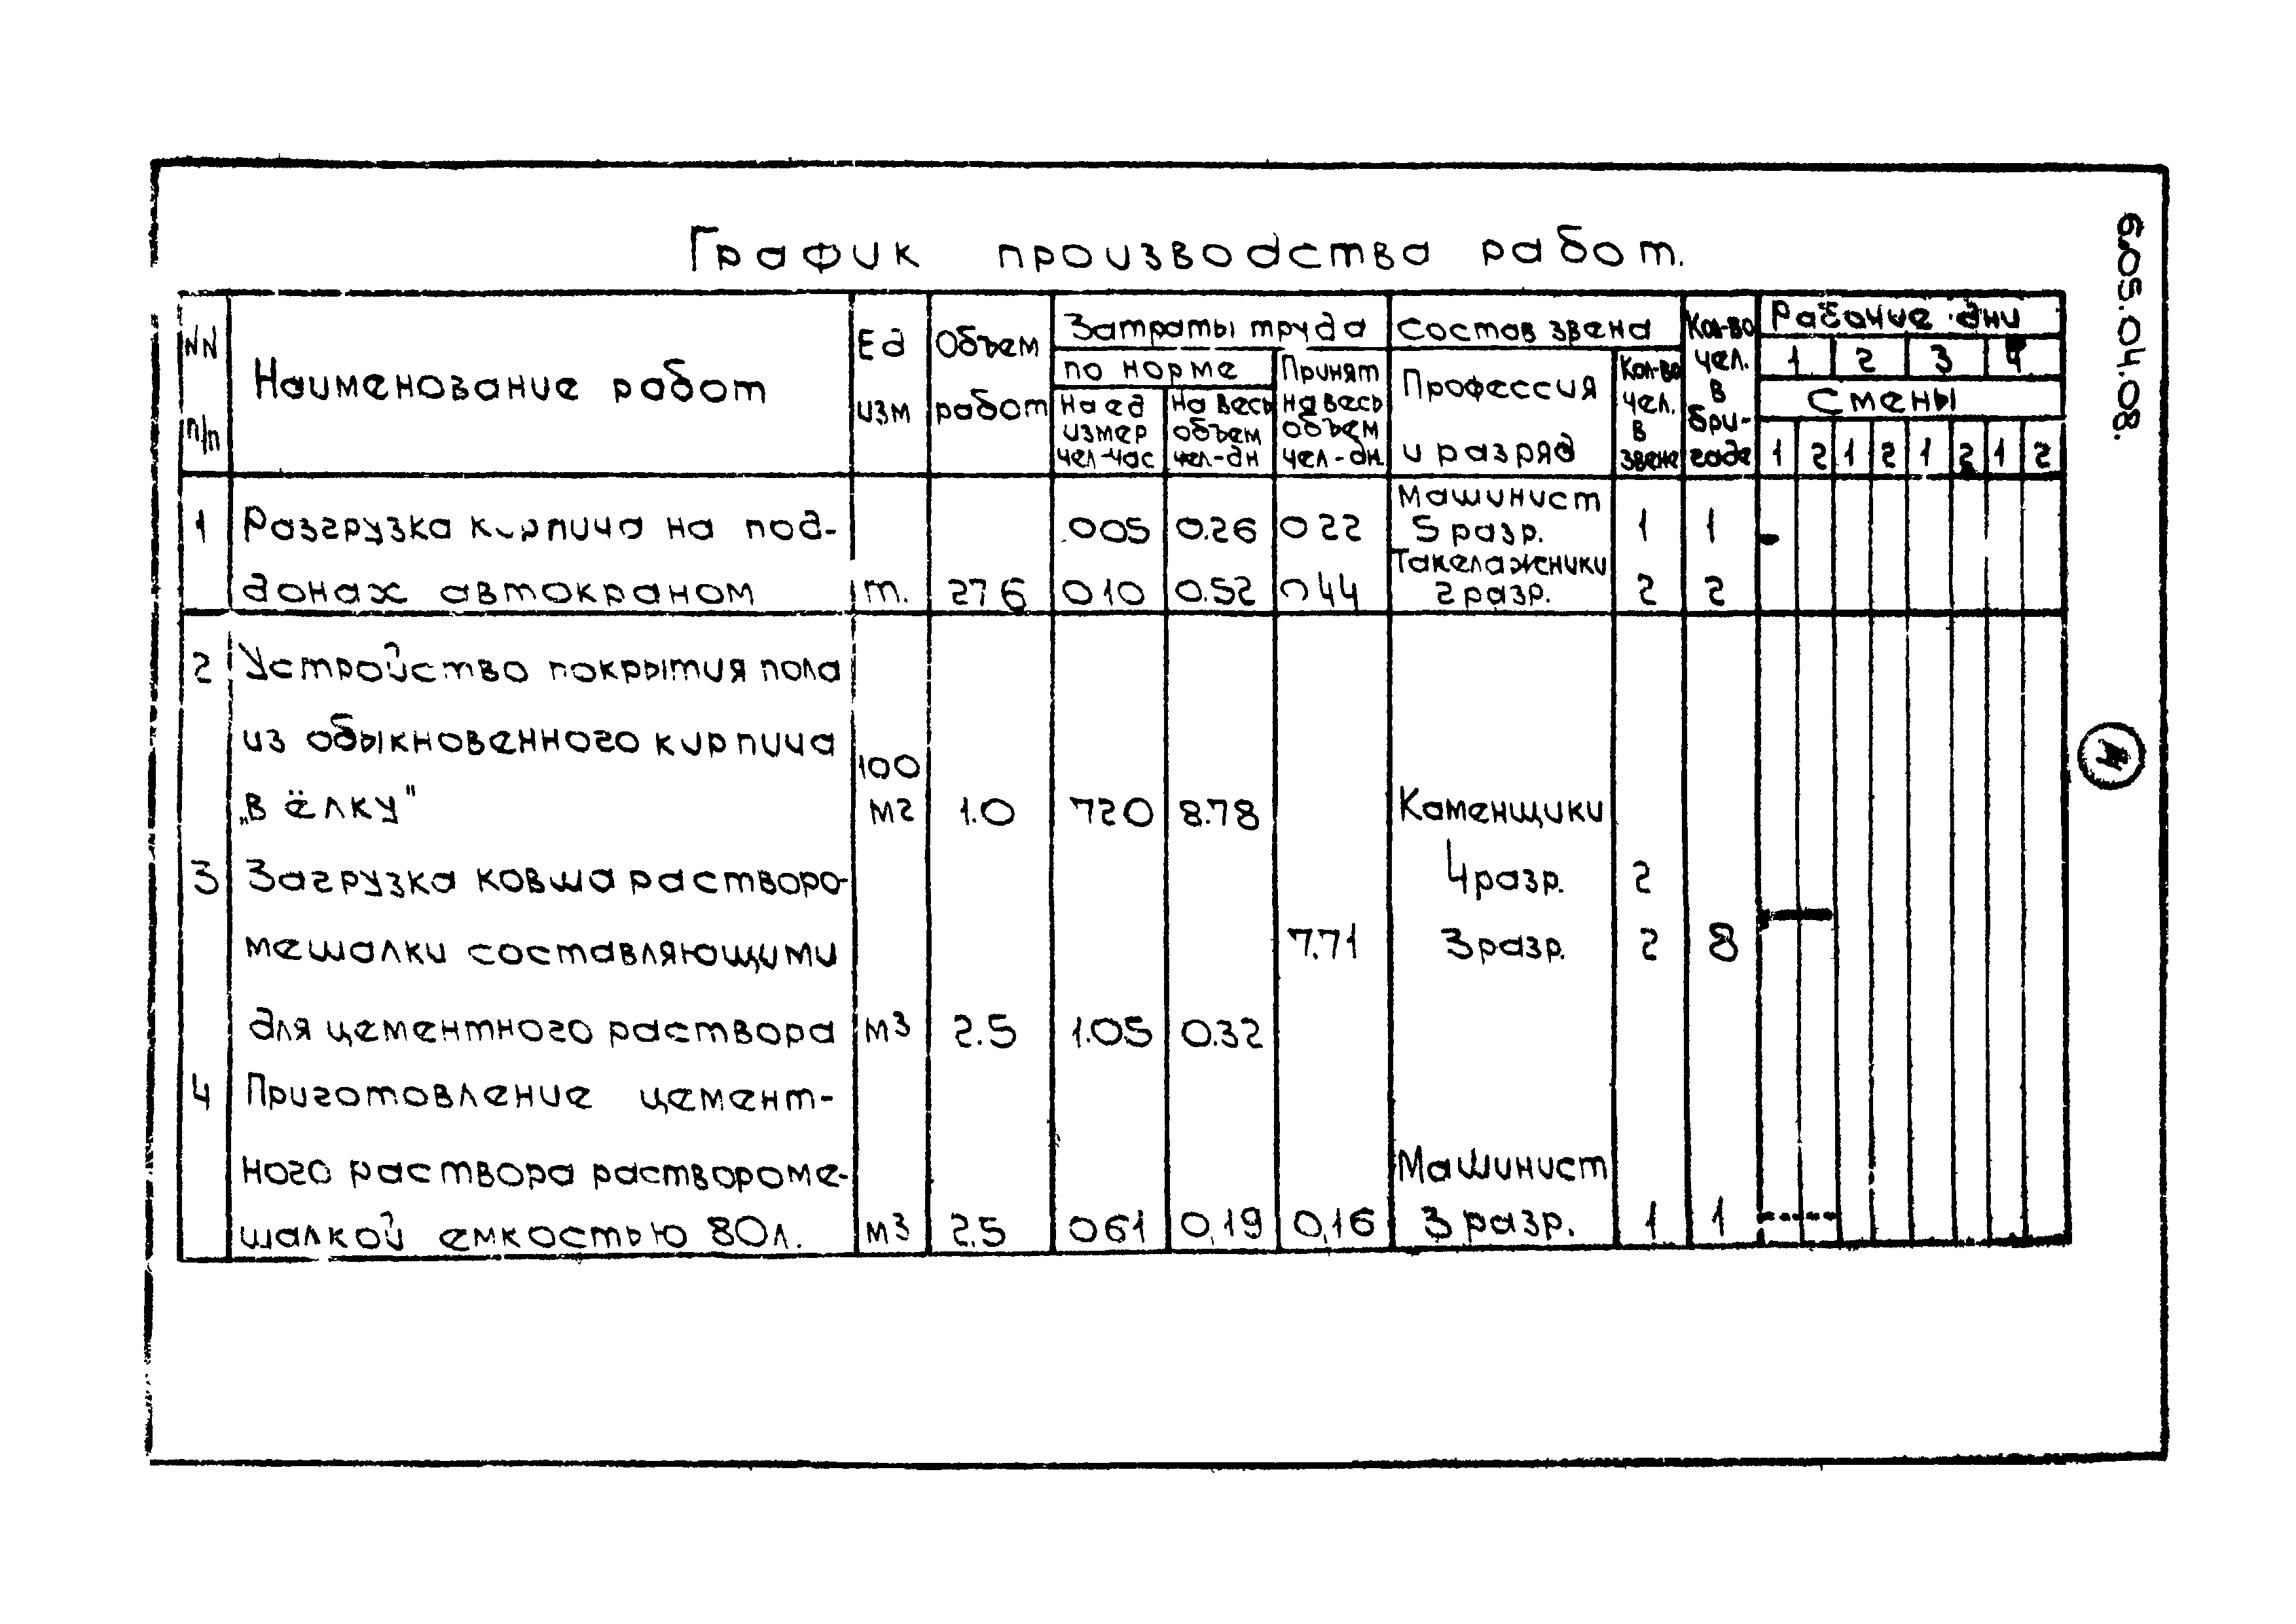 График производства работ.
6.05.04.08.
NN п/п
Наименование работ
Ед изм
Объем работ
Затраты труда
по норме
На ед измер чел-час
На весь объем чел-дн
Принят на весь объем чел-дн.
Состав звена
Профессия и разряд
Кол-во чел. в звене
Кол-во чел. в бригаде
Рабочие дни
1 2 3 4
Смены
1 2 1 2 1 2 1 2
Машинист
1 Разгрузка кирпича на под- 005 0.26 022 5 разр. 1 1
Такелажники
донах автокраном т. 276 010 0.52 044 2 разр. 2 2
2 Устройство покрытия пола
из обыкновенного кирпича
100
„в ёлку" м2 1.0 720 8.78 Каменщики
3 Загрузка ковша растворо- 4 разр. 2
мешалки составляющими 7.71 3 разр. 2 8
для цементного раствора м3 2.5 1.05 0.32
4 Приготовление цемент-
ного раствора растворome- Машинист
шалкой емкостью 80л. м3 2.5 061 0,19 0,16 3 разр. 1 1